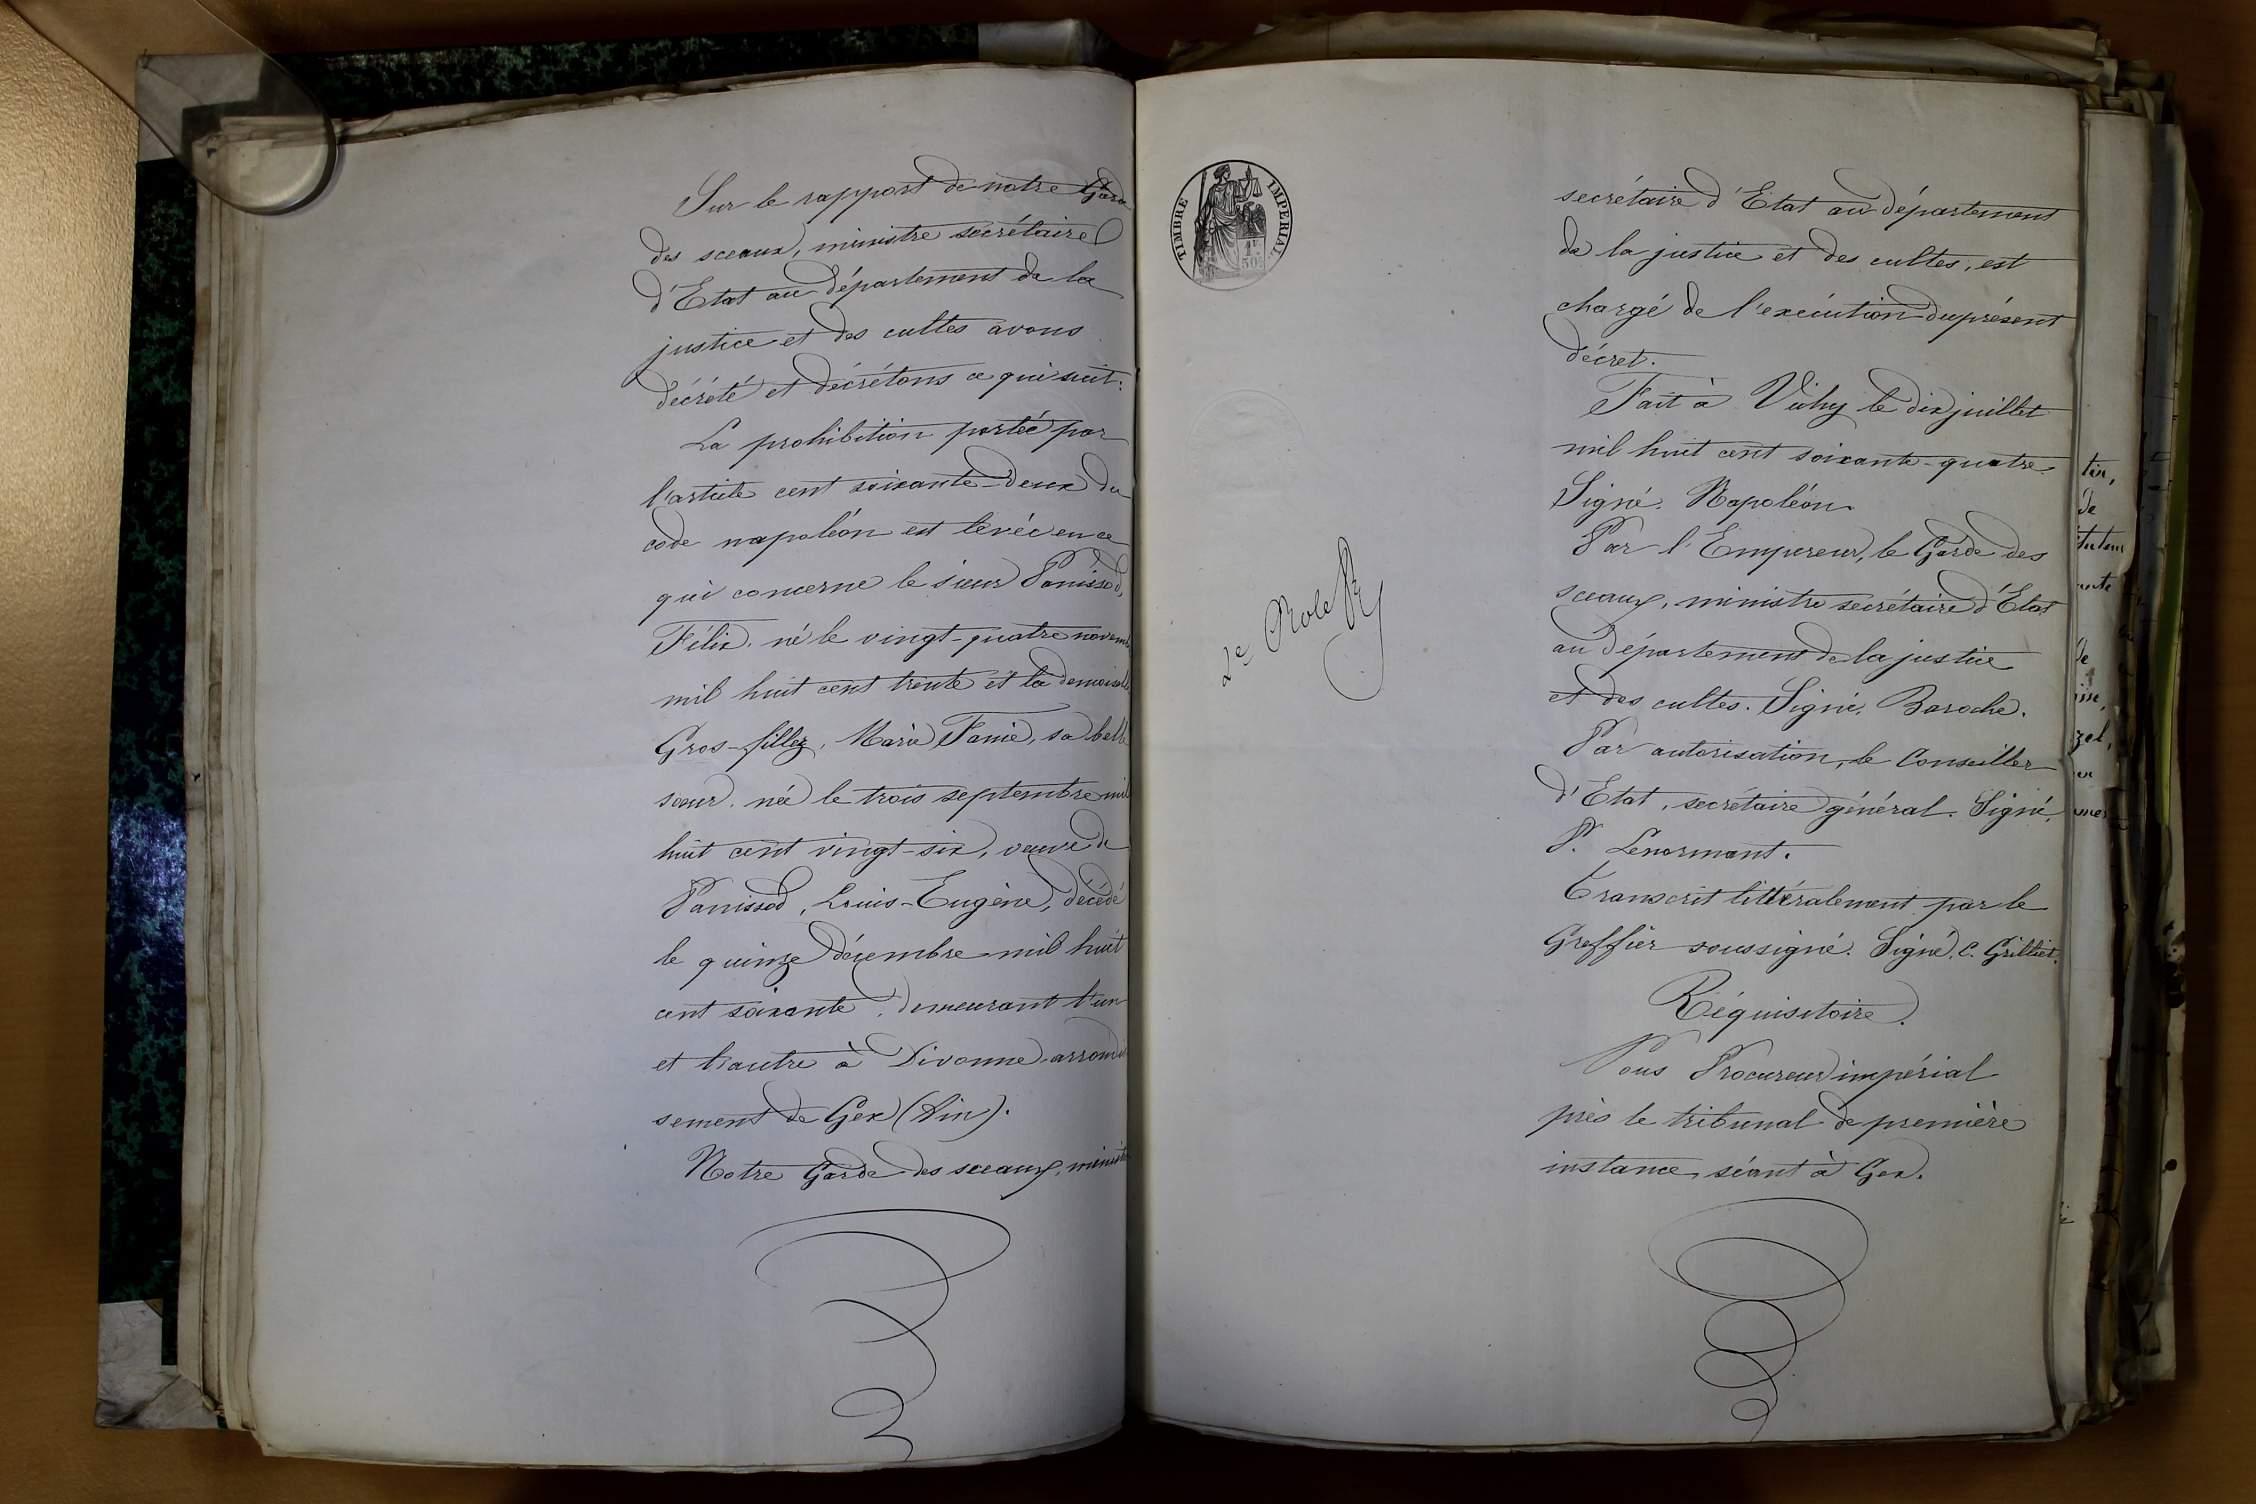 Sur le rapport de notre Garde
des sceaux, ministre secrétaire
d'Etat au département de la
justice et des cultes avons
décrété et décrétons ce qui suit:
La prohibition portée par
l'article cent soixante-deux du
code napoléon est levée en ce
qui concerne le sieur Panissod,
Félix, né le vingt-quatre novemb
mil huit cent trente et la demoiselle
Gros-fillez, Marie Fanie, sa belle
sœur, née le trois septembre mil
huit cent vingt-six, veuve de
Panissod, Louis-Eugène, décédé
le quinze décembre mil huit
cent soixante, demeurant l'un
et l'autre à Divonne, arrondis
sement de Gex (Ain).
Notre Garde des sceaux, ministre
TIMBRE IMPERIAL
50
2e Role
secrétaire d'Etat au département
de la justice et des cultes, est
chargé de l'exécution du présent
décret.
Fait à Vichy le dix juillet
mil huit cent soixante-quatre
Signé. Napoléon.
Par l'Empereur, le Garde des
sceaux, ministre secrétaire d'Etat
au département de la justice
et des cultes. Signé, Baroche.
Par autorisation, le Conseiller
d'Etat, secrétaire général. Signé,
P. Lenormant.
Transcrit littéralement par le
Greffier soussigné. Signé, C. Grilliet.
Réquisitoire.
Nous Procureur impérial
près le tribunal de première
instance, séant à Gex.